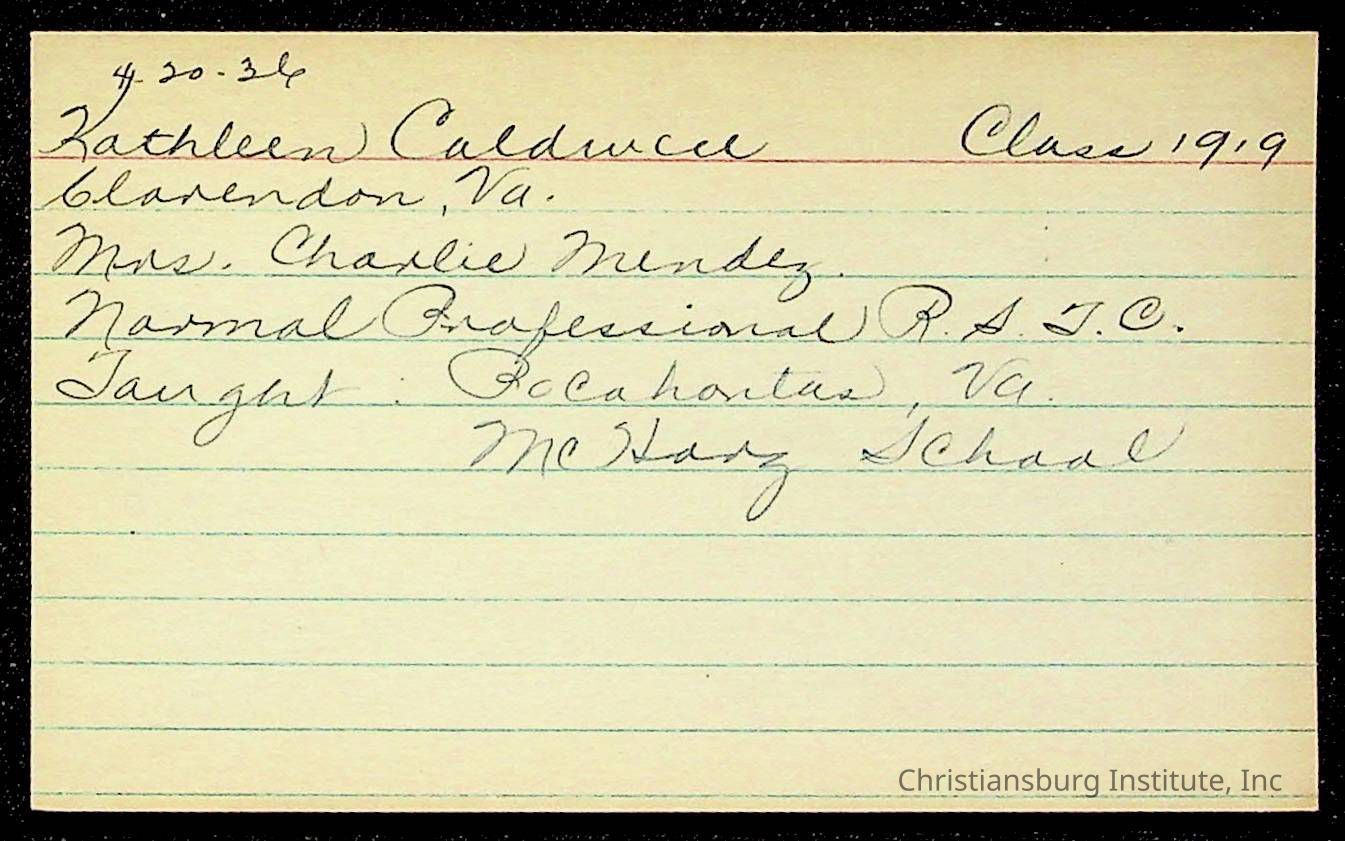 4-20-36
Kathleen Caldwell Class 1919
Clarendon, Va.
Mrs. Charlie Mendez.
Normal Professional R. S. T. C.
Taught : Pocahontas, Va.
McHarg School
Christiansburg Institute, Inc